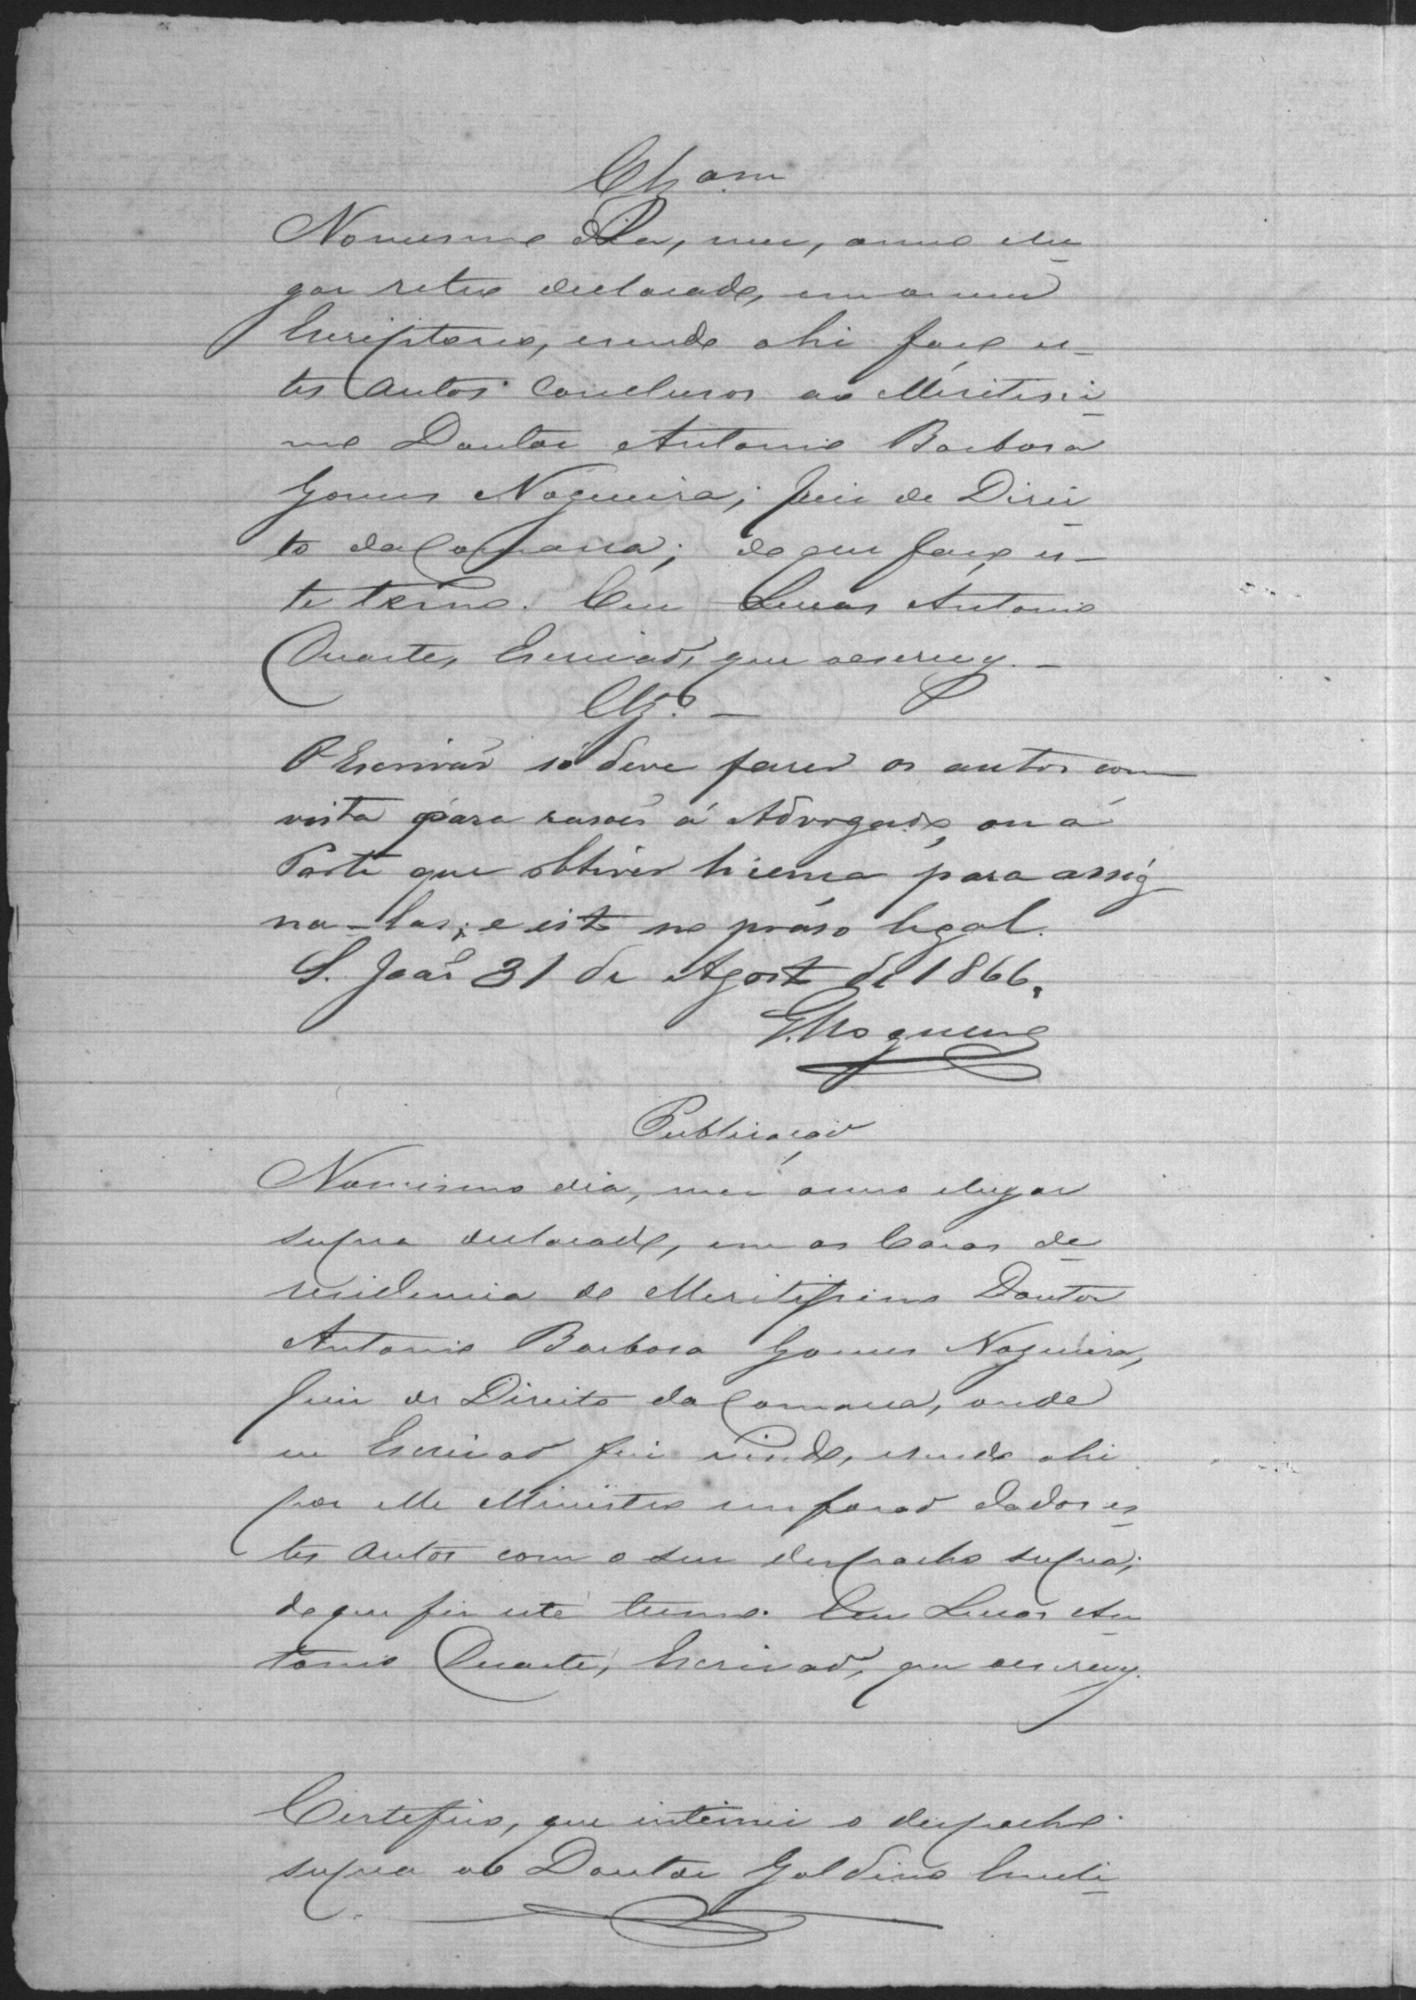 Clzam
Nomesmo dia, mez, anno elu-
gar retro declarado, em o meu
Escriptorio, esendo ahi faço es-
tes autos Conclusos ao Meritissi-
mo Doutor Antonio Barbosa
Gomes Nogueira; Juiz de Direi-
to da Comarca; do que faço es-
te termo. Eu Lucas Antonio
Duarte, Escrivaõ, que oescrevy.
Clz.º
O Escrivaõ só deve fazer os autos com
vista para rasoẽs á Advogado, ou á
Parte que obtiver licença para assig-
na-las; e isto no praso legal.
S. Joaõ 31 de Agosto de 1866.
G. Nogueira
Publicaçaõ
Nomesmo dia, mez anno elugar
supra declarado, em as Casas de
residencia do Meritissimo Doutor
Antonio Barbosa Gomes Nogueira,
Juiz de Direito da Comarca, onde
eu Escrivaõ fui vindo, esendo ahi
por elle Ministro me foraõ dados es-
tes autos com o seu despacho supra;
do que fiz este termo. Eu Lucas An-
tonio Duarte, Escrivaõ, que oescrevy.
Certefico, que intimei o despacho
supra ao Doutor Galdino Emili-